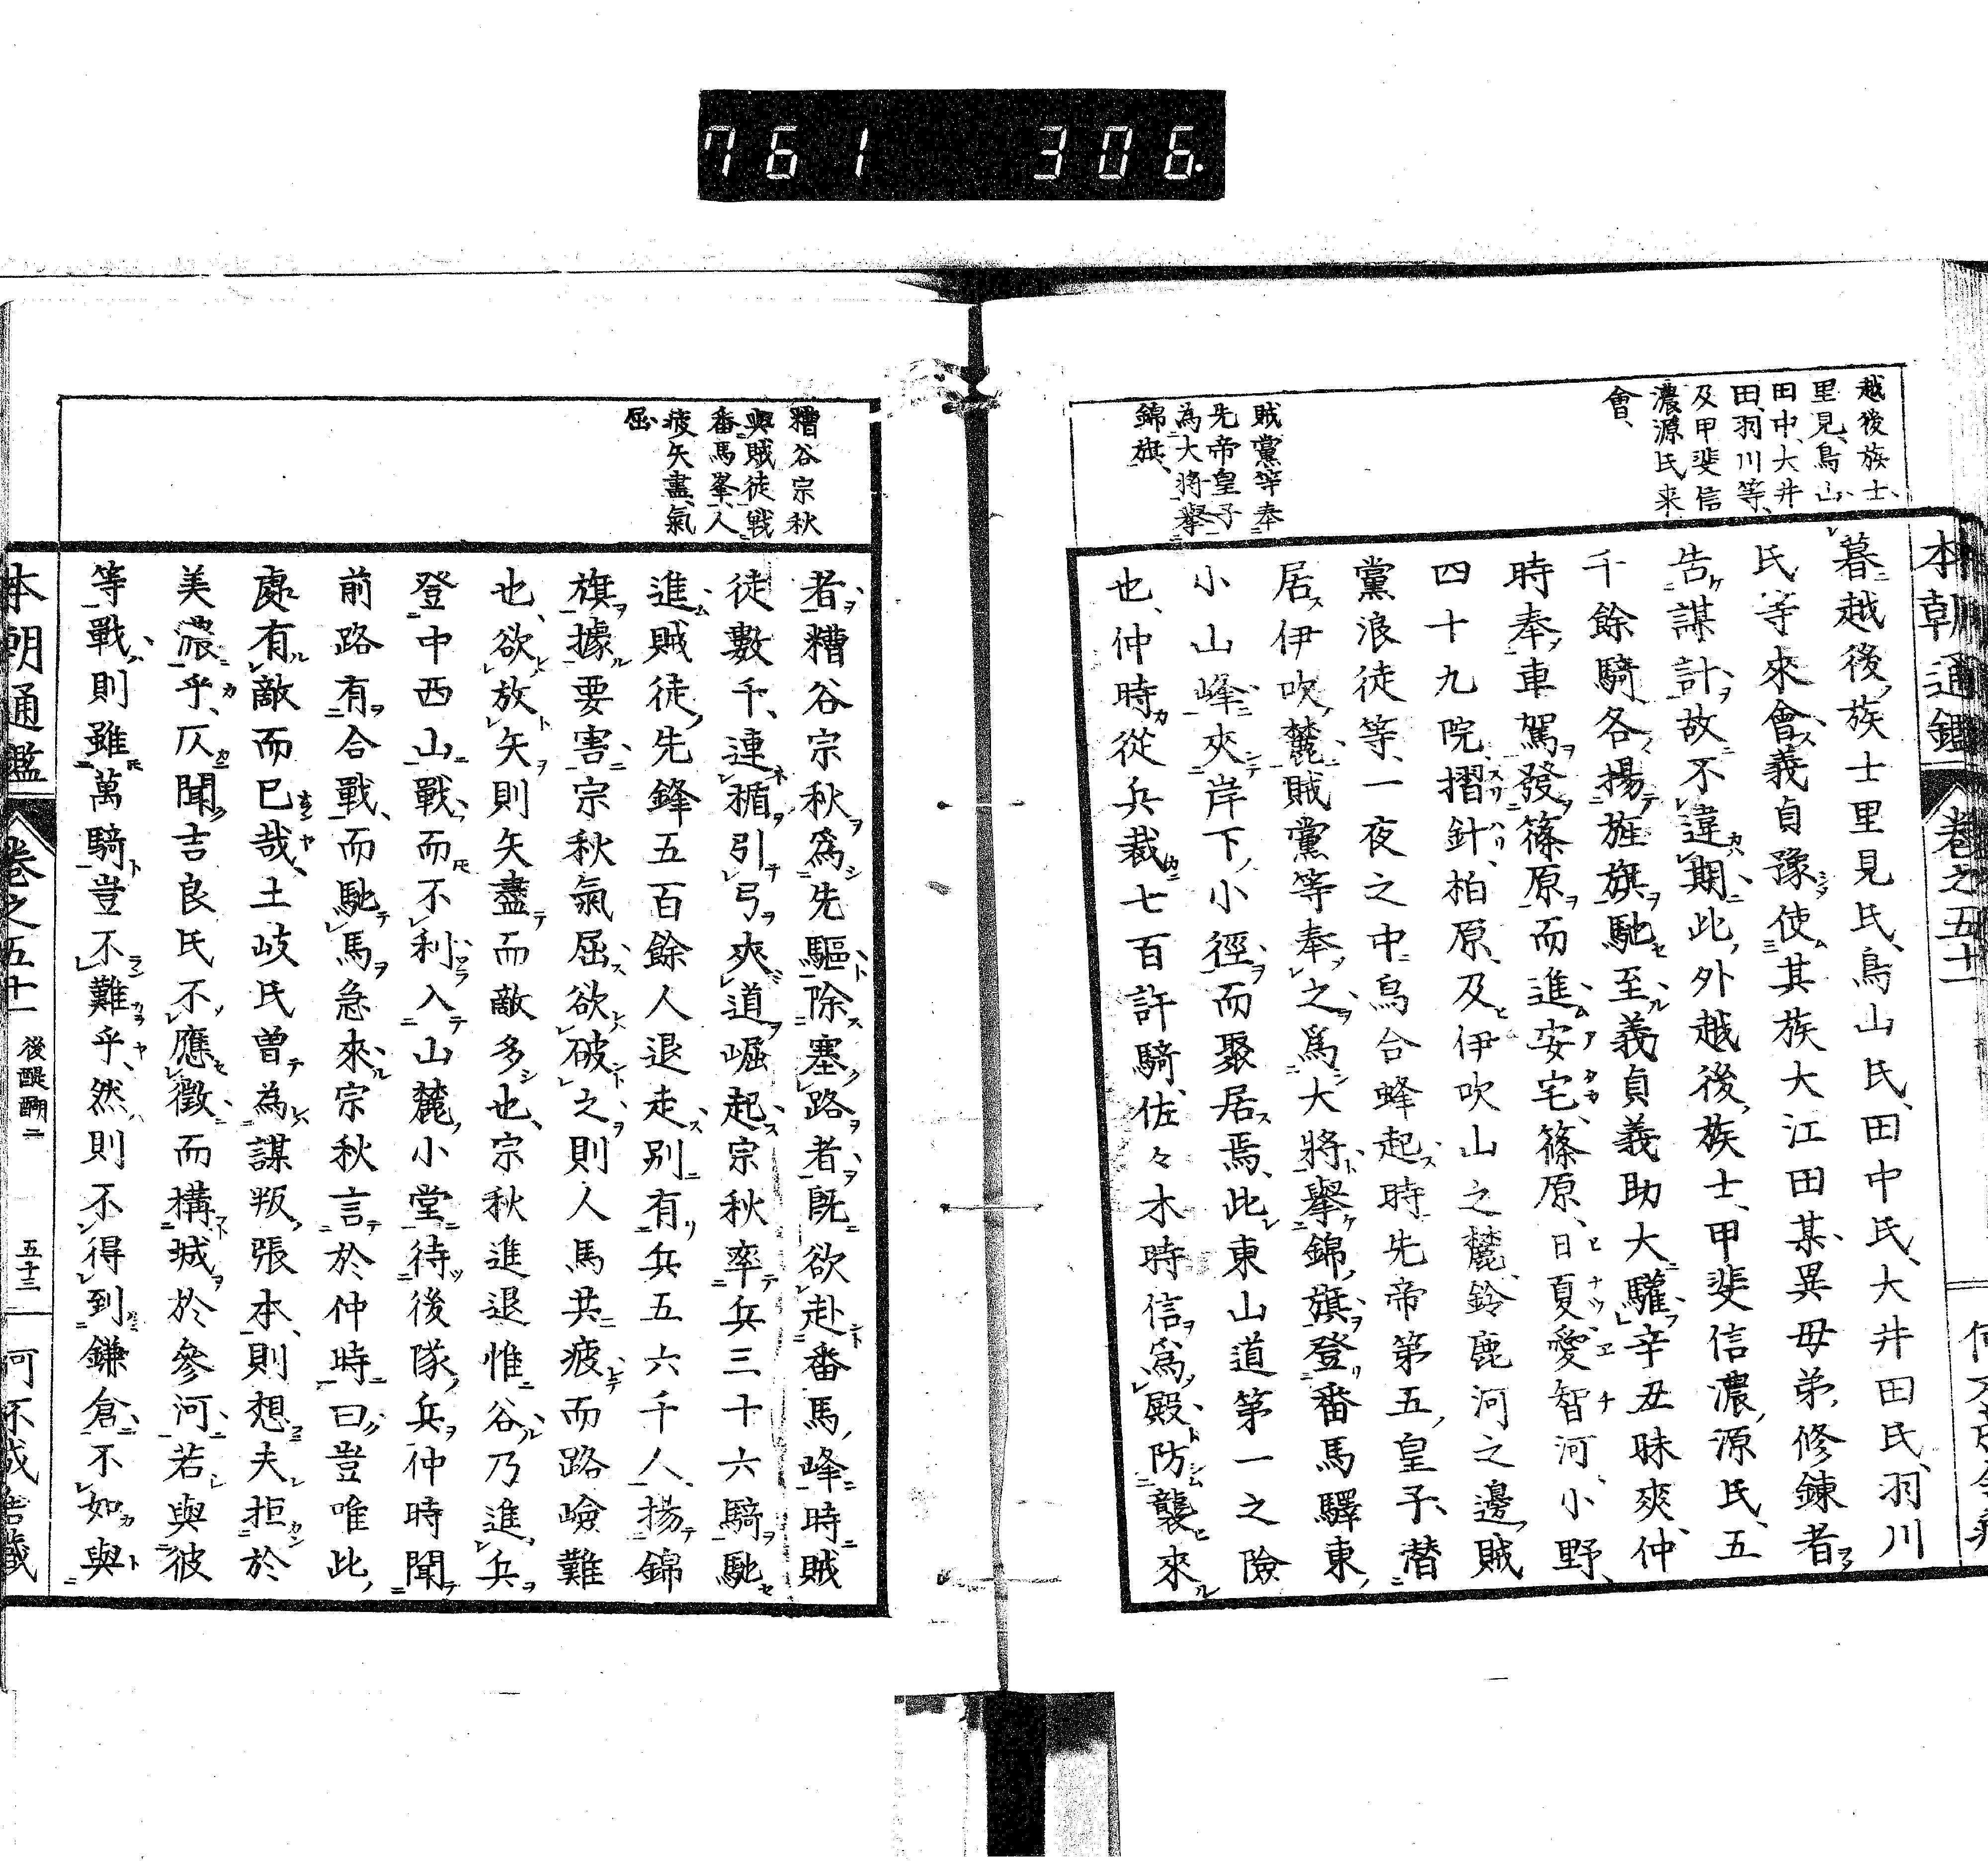 761 306.
本朝通鑑 卷之五十一
越後族士、
里見、鳥山、
田中、大井
田、羽川等、
及甲斐信
濃源氏来
會、
賊黨等奉
先帝皇子
為大將擧
錦旗、
暮越後族士里見氏、鳥山氏、田中氏、大井田氏、羽川
氏等來會義貞豫使其族大江田某、異母弟修錬者
告謀計故不違期此外越後族士、甲斐信濃源氏、五
千餘騎各揚旌旗馳至義貞義助大驩辛丑昧爽、仲
時奉車駕發篠原而進安宅、篠原、日夏愛智河、小野、
四十九院、摺針、柏原、及伊吹山之麓、鈴鹿河之邊賊
黨浪徒等、一夜之中烏合蜂起時先帝第五皇子、潛
居伊吹麓賊黨等奉之爲大將擧錦旗登番馬驛東
小山峰夾岸下小徑而聚居焉、此東山道第一之險
也、仲時從兵裁七百許騎、佐々木時信爲殿防襲來
糟谷宗秋
與賊徒戰
番馬峯、人
疲矢盡、氣
屈
者、糟谷宗秋爲先驅除塞路者既欲赴番馬峰時賊
徒數千、連楯引弓夾道崛起宗秋率兵三十六騎馳
進、賊徒先鋒五百餘人退走別有兵五六千人、揚錦
旗據要害宗秋氣屈欲破之則人馬共疲而路嶮難
也、欲放矢則矢盡而敵多也、宗秋進退惟谷、乃進兵
登中西山戰而不利入山麓小堂待後隊兵仲時聞
前路有合戰、而馳馬急來宗秋言於仲時曰豈唯此
處有敵而已哉、土岐氏曽為謀叛張本、則想夫拒於
美濃乎、仄聞吉良氏不應徵而構城於參河、若與彼
等戰、則雖萬騎豈不難乎、然則不得到鎌倉不如與
本朝通鑑 卷之五十一 後醍醐二 五十三